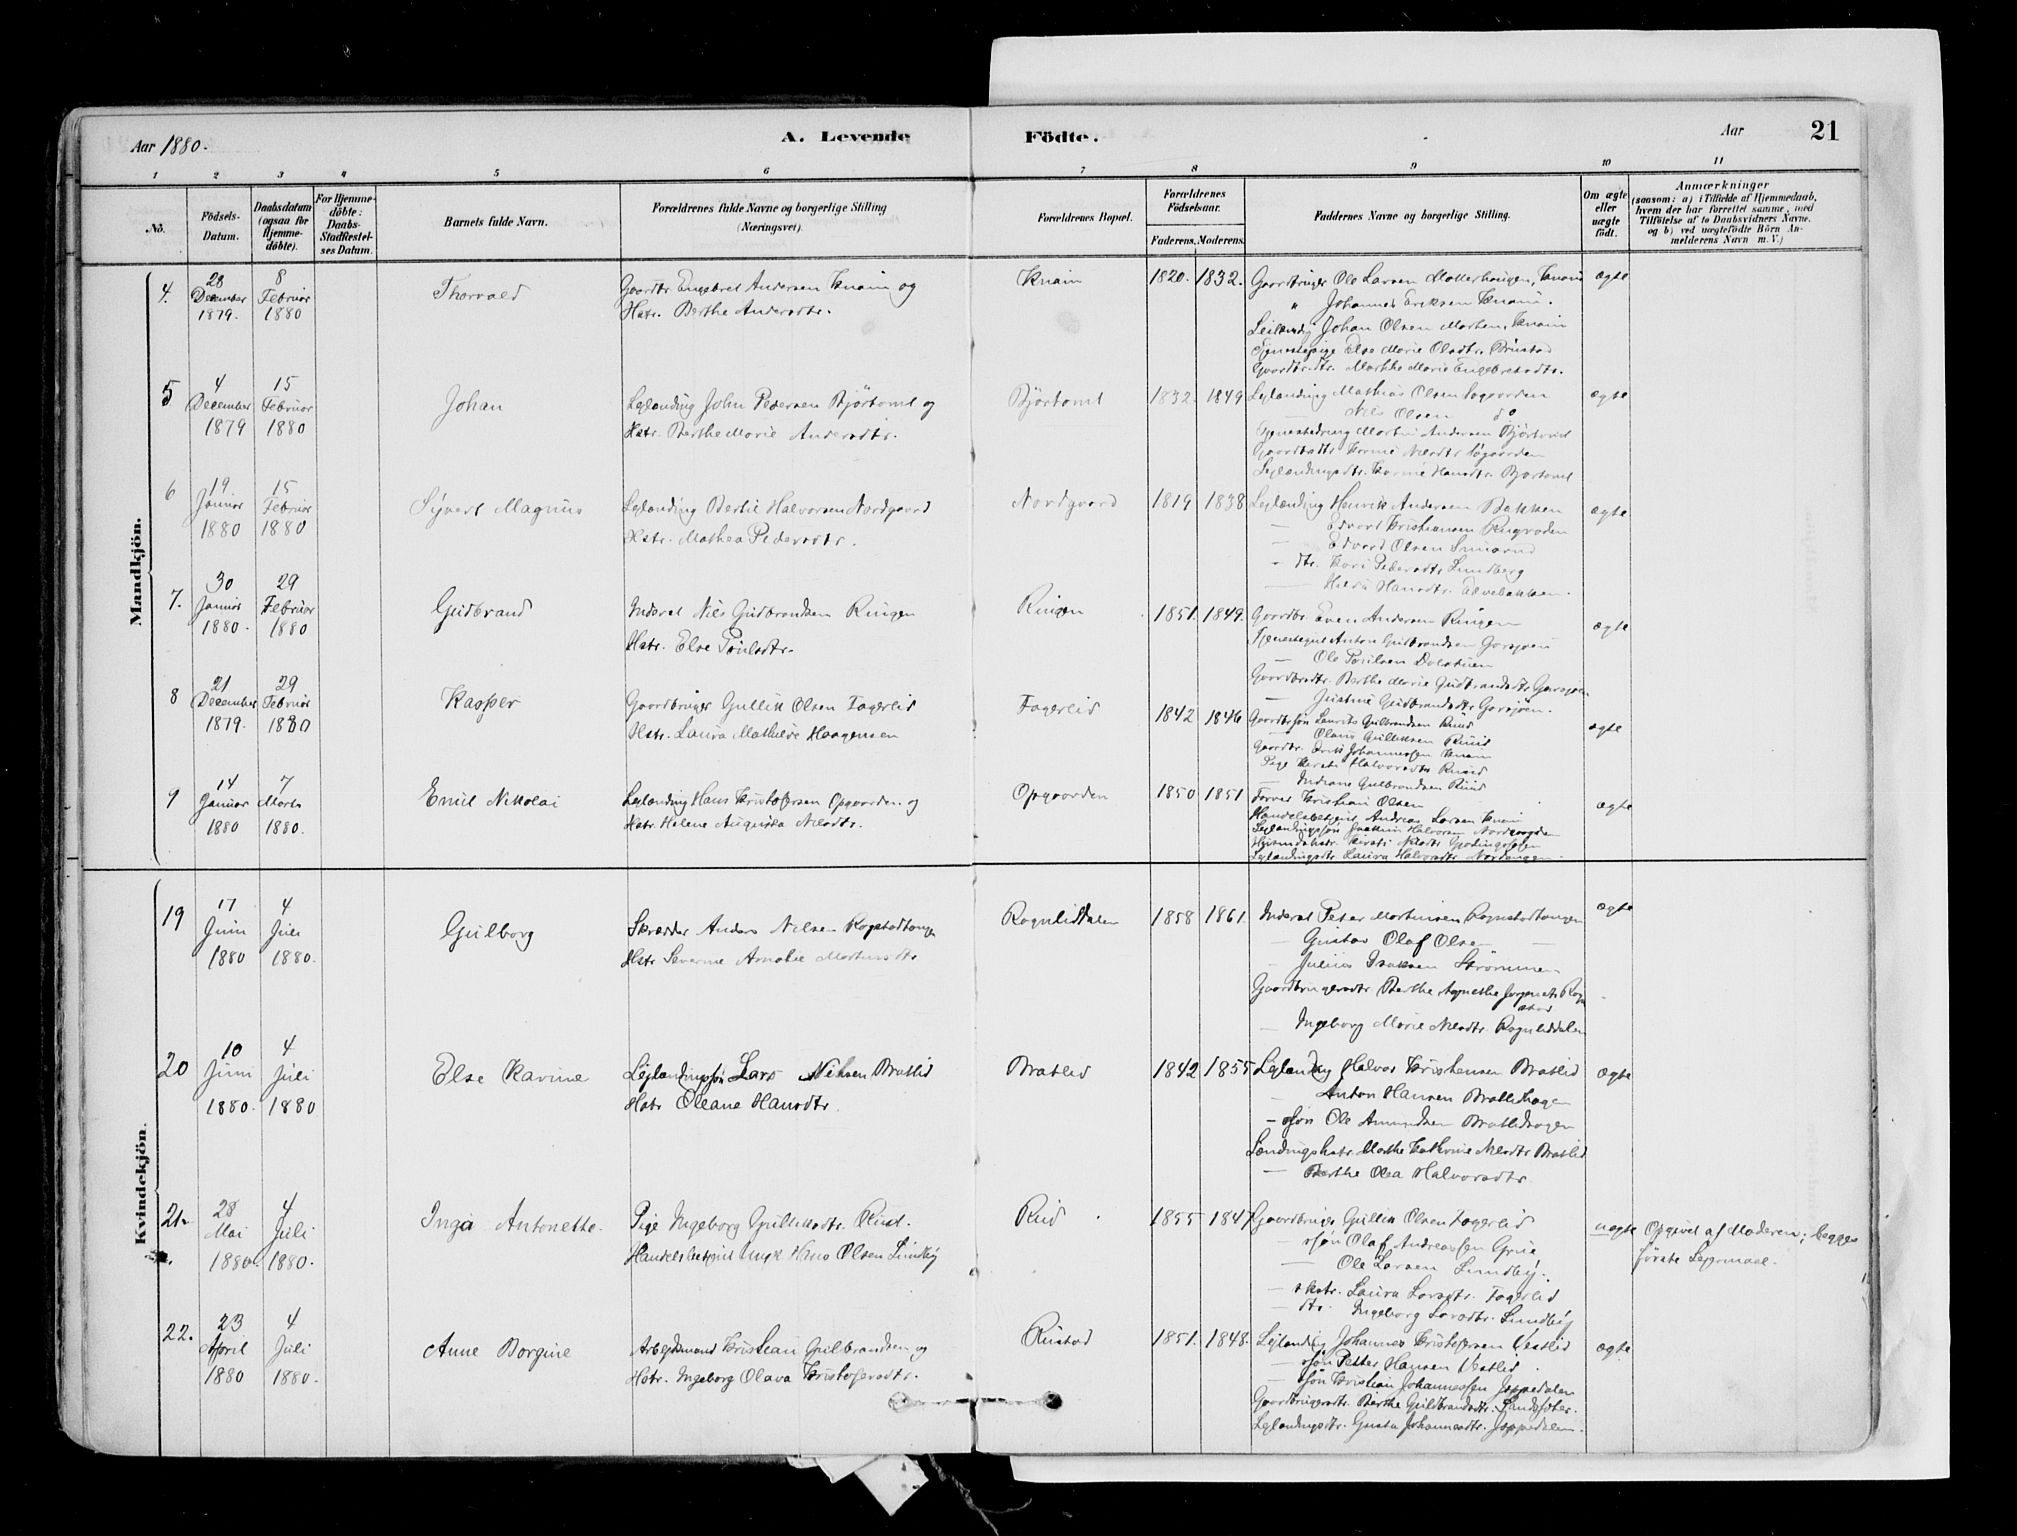 Aar 1880.
A. Levende Födte.
Aar
21
1 2 3 4 5 6 7 8 9 10 11
No.
Födsels-
Datum.
Daabsdatum
(ogsaa for
Hjemme-
döbte).
For Hjemme-
döbte:
Daabs-
Stadfæstel-
ses Datum.
Barnets fulde Navn.
Forældrenes fulde Navne og borgerlige Stilling
(Næringsvei).
Forældrenes Bopæl.
Forældrenes
Födselsaar.
Faderens. Moderens.
Faddernes Navne og borgerlige Stilling.
Om ægte
eller
uægte
födt.
Anmærkninger
(saasom: a) i Tilfælde af Hjemmedaab,
hvem der har forrettet samme, med
Tilföielse af to Daabsvidners Navne.
og b) ved uægtefödte Börn An-
melderens Navn m. V.)
Mandkjön.
4.
28
December
1879.
8
Februar
1880
Thorvald
Gaardbr Engebret Andersen Knain og
Hstr. Berthe Andersdtr.
Knain
1820. 1832.
Gaardbruger Ole Larsen Knain
" Johannes Eriksen Knain.
Johan Olsen Knain
Tjenestepige Else Marie Olsdtr.
Gaardbrdtr. Marthe Marie Engebretsdtr.
ægte
5
4
December
1879
15
Februar
1880
Johan
Leylending John Pedersen Bjørtomt og
Hstr. Berthe Marie Andersdtr.
Bjørtomt
1832. 1849
Leylending Mathias Olsen
Nils Olsen do
Martin Andersen Bjørtomt
ægte
6
19
Januar
1880
15
Februar
1880
Syvert Magnus
Leylending Bertil Halvorsen Nordgaard
Hstr. Mathea Pedersdtr.
Nordgaard
1819 1838
Leylending Henrik Andersen Bakken
— Edvard Kristiansen
— Edvard Olsen
- dtr. Kari Pedersdtr Lundberg
ægte
7.
30
Januar
1880.
29
Februar
1880
Gudbrand
Inderst Nils Gudbrandsen Ringen
Hstr. Else Paulsdtr.
Ringen
1851. 1849.
Gaardbr Even Andersen Ringen
Anton Gulbrandsen
— Ole Paulsen
Gaardbrdtr. Berthe Marie Gudbrandsdtr
— Justine Gudbrandsdtr
ægte
8
21
December
1879.
29
Februar
1880
Kasper
Gaardbruger Gullik Olsen Fagerlid
Hstr. Laura Mathilde Haagensen
Fagerlid
1842 1846
Gaardbrsøn Laurits Gulbrandsen Ruud
— Olaus Gulliksen Ruud
Johannessen Knain
Pige Kersti Halvorsdtr Ruud
— Indiane Gulbrandsen Ruud
ægte
9
14
Januar
1880
7
Marts
1880.
Emil Nikolai
Leylending Hans Kristofersen Opgaarden og
Hstr. Helene Augusta Nilsdtr.
Opgaarden
1850 1851
Farver Kristian Olsen
Handelsbetjent Andreas Larsen Knain
Leylendingssøn Halvorsen
Leylendingsdtr Laura Halvorsdtr
ægte
Kvindekjön.
19
17
Juni
1880
4
Juli
1880.
Gulborg
Skrædder Anders Nilsen
Hstr Severine Amalie Martinsdtr
Rognliddalen
1858 1861.
Inderst Peter Martinsen
— Gustav Olaf Olsen —
— Julius Isaksen Strømmen
Gaardbrugersdtr Berthe Agnethe
— Ingeborg Marie Nilsdtr. Rognliddalen
ægte
20
10
Juni
1880.
4
Juli
1880
Else Karine
Leylendingssøn Lars Nilsen Bratlid
Hstr Oleane Hansdtr.
Bratlid
1842 1855
Leylending Halvor Kristensen Bratlid
Anton Hansen Bratlihagen
- søn Ole Amundsen Bratlihagen
Marthe Kathrine Nilsdtr Bratlid
— Berthe Olea Halvorsdtr.
ægte
21.
28
Mai
1880.
4
Juli
1880.
Inga Antonette.
Pige Ingeborg Gulliksdtr. Rud.
Handelsbetjent Ungk Hans Olsen Lundby
Rud
1855 1847
Gaardbruger Gullik Olsen Fagerlid
— søn Olaf Andreassen Grue
— Ole Larsen Lundby.
— hstr. Laura Larsdtr. Fagerlid
— dtr. Ingeborg Larsdtr. Lundby
uægte
Opgivet af Moderen; begges
første Leiermaal.
22.
23
April
1880
4
Juli
1880.
Anne Borgine
Arbeidsmand Kristian Gulbrandsen og
Hstr. Ingeborg Olava Kristofersdtr.
Rustad
1851. 1848.
Leylending Johannes Kristofersen Vestlid
— søn Petter Hansen Vestlid.
— søn Kristian Johannessen Joppedalen
Gaardbrugersdtr. Berthe Gulbrandsdtr.
Leylendingsdtr. Gusta Johannesdtr. Joppedalen.
ægte